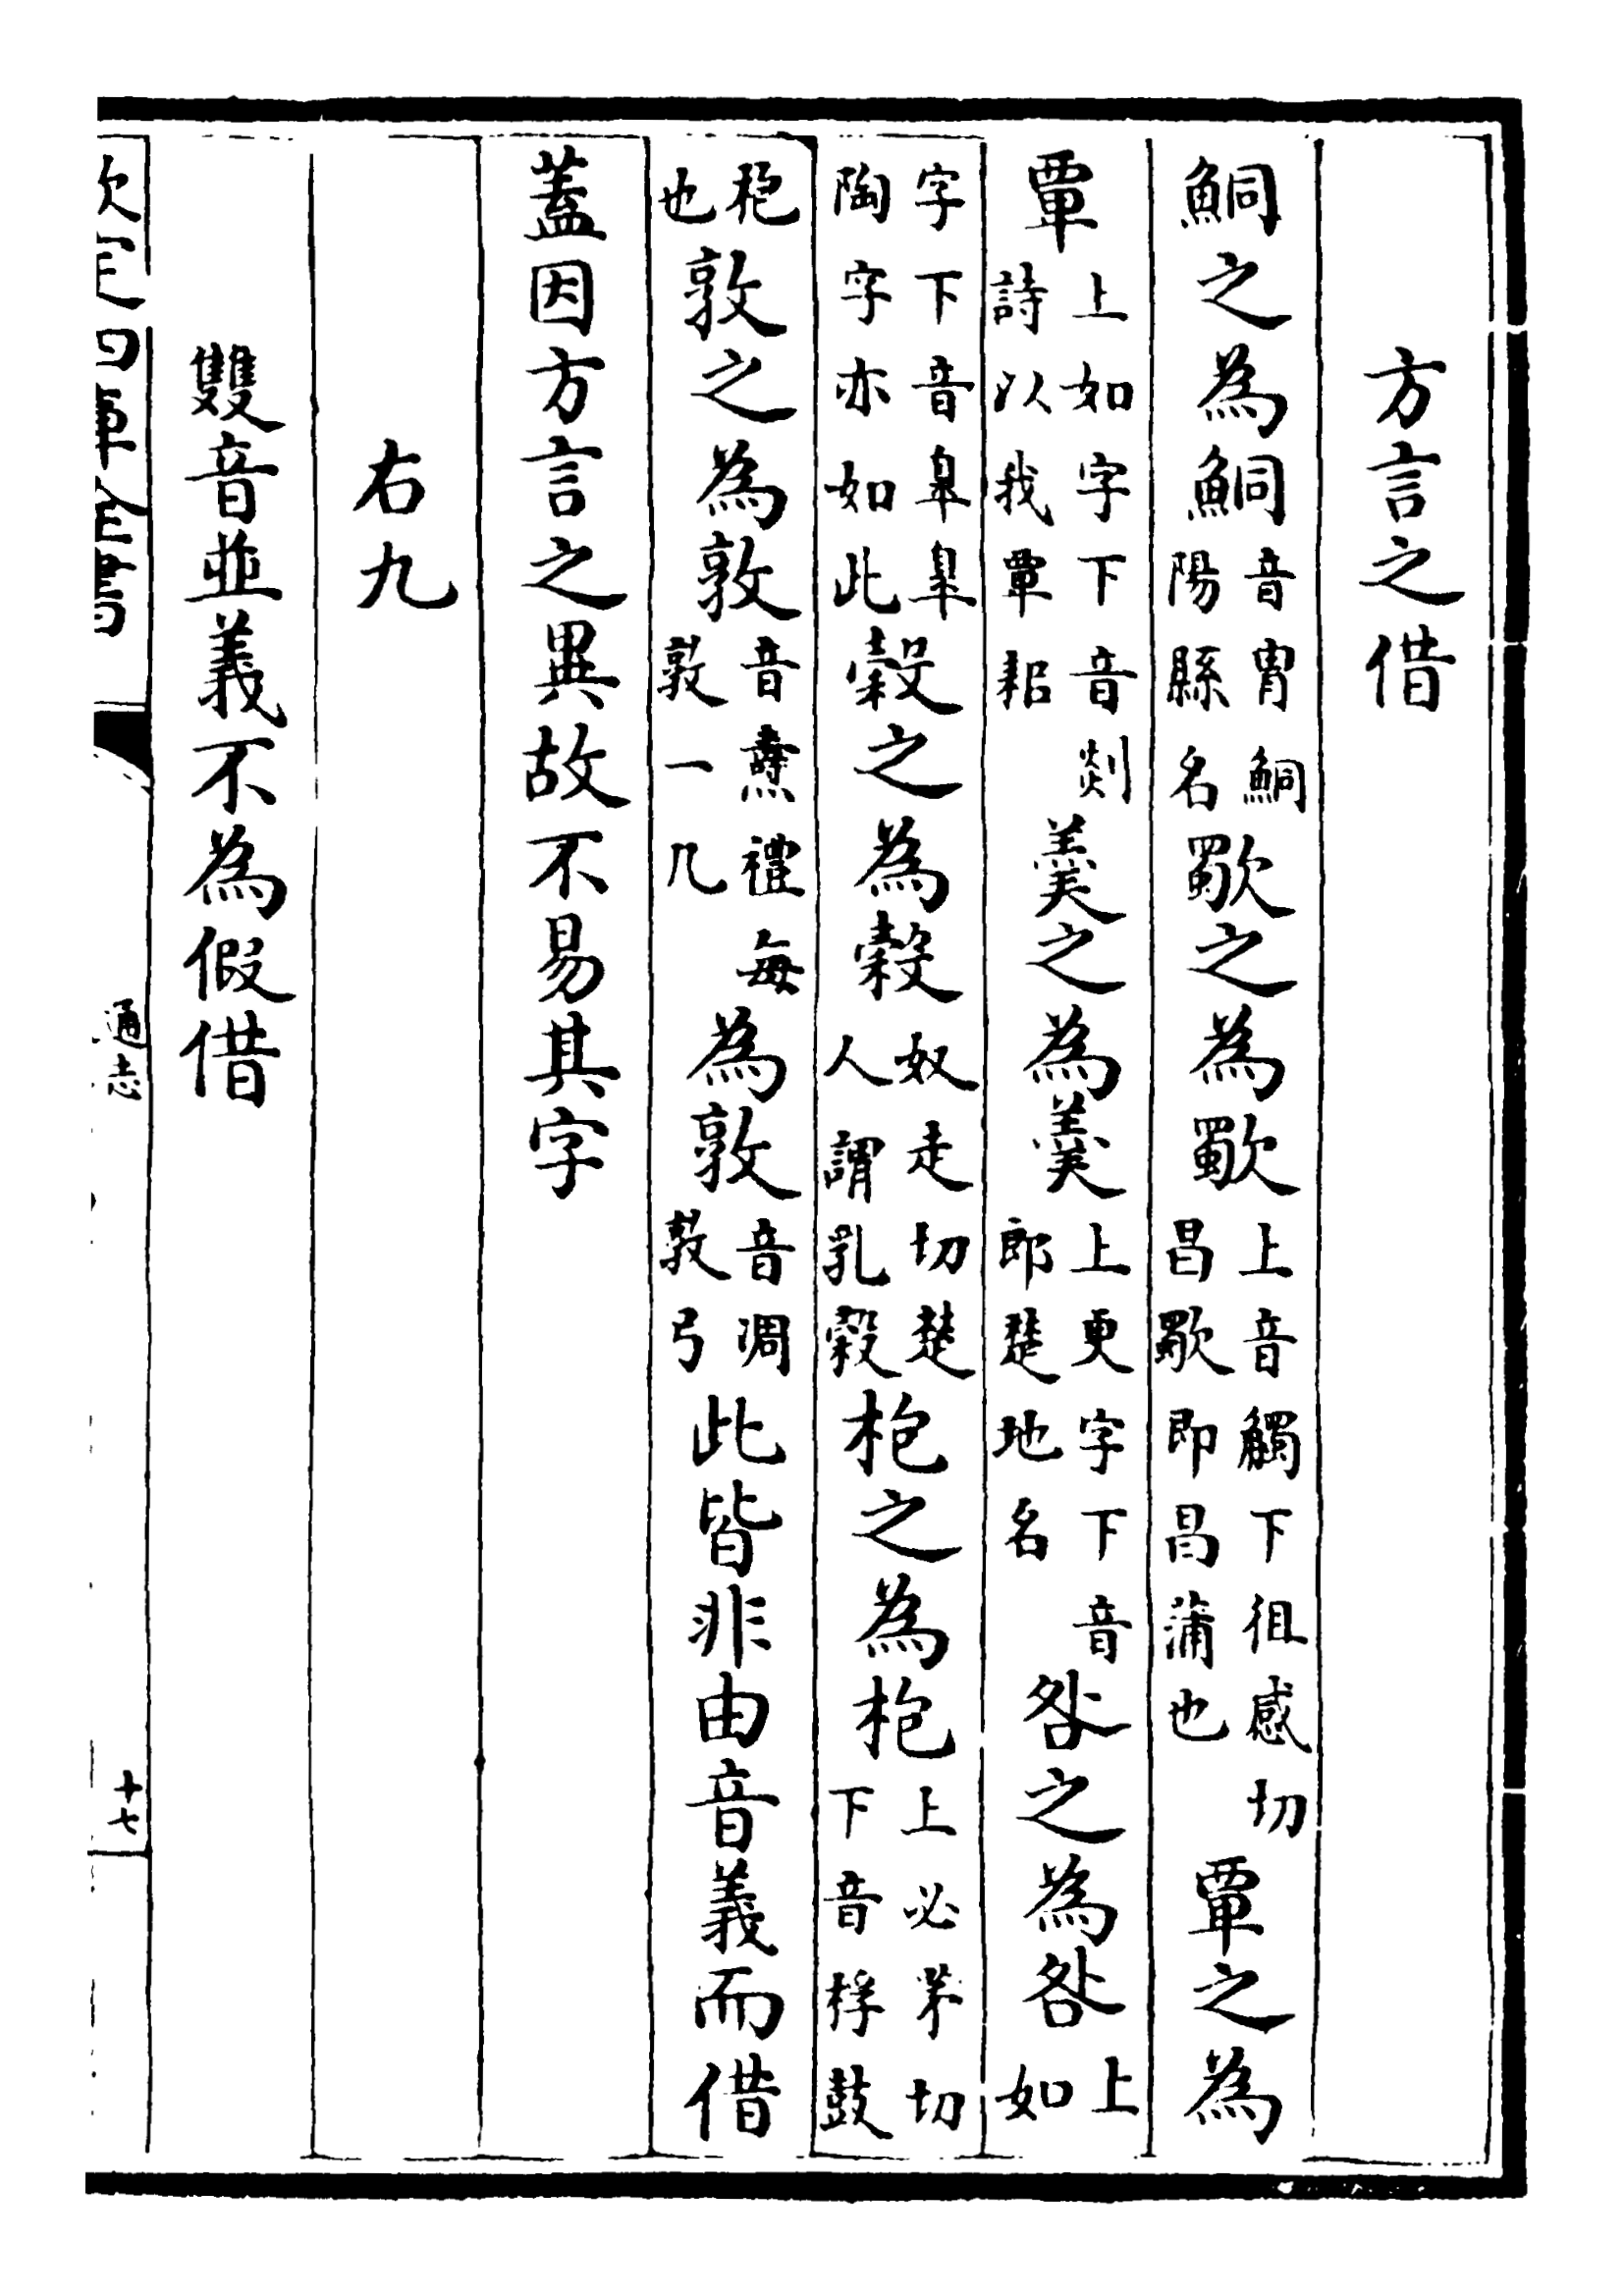 方言之借
鮦之為鮦音胄鮦陽縣名歜之為歜上音觸下徂感切昌歜即昌蒲也覃之為
覃上如字下音剡詩以我覃耜羮之為羮上更字下音郎楚地名咎之為咎上如
字下音臯臯陶字亦如此穀之為穀奴走切楚人謂乳穀枹之為枹上必茅切下音桴鼓
枹也敦之為敦音燾禮每敦一几為敦音凋敦弓此皆非由音義而借
蓋因方言之異故不易其字
右九
雙音並義不為假借
欽定四庫全書
通志
十七